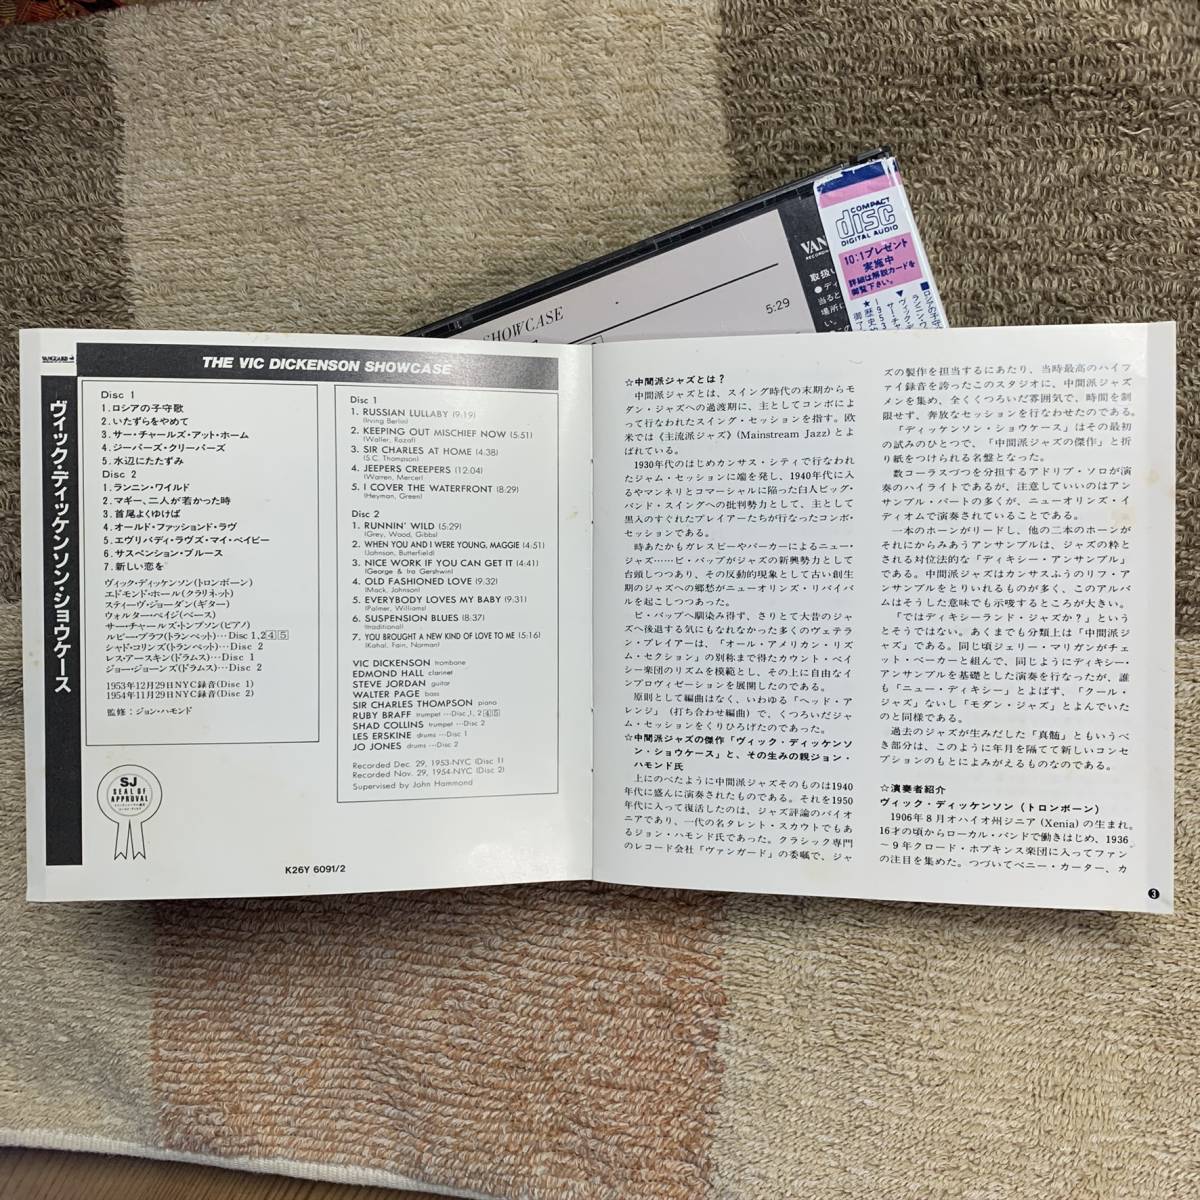 COMPACT
disc
DIGITAL AUDIO
10:1プレゼント
実施中
詳細は解説カードを
御覧下さい。
VAN
取扱い
SHOWCASE
5:29
VANGUARD
ヴィック・ディッケンソン・ショウケース
THE VIC DICKENSON SHOWCASE
Disc 1
1. ロシアの子守歌
2. いたずらをやめて
3. サー・チャールズ・アット・ホーム
4. ジーパーズ・クリーパーズ
5. 水辺にたたずみ
Disc 2
1. ランニン・ワイルド
2. マギー、二人が若かった時
3. 首尾よくゆけば
4. オールド・ファッションド・ラヴ
5. エヴリバディ・ラヴズ・マイ・ベイビー
6. サスペンション・ブルース
7. 新しい恋を
ヴィック・ディッケンソン(トロンボーン)
エドモンド・ホール(クラリネット)
スティーヴ・ジョーダン(ギター)
ウォルター・ペイジ(ベース)
サー・チャールズ・トンプソン(ピアノ)
ルビー・ブラフ(トランペット)…Disc 1, 2④⑤
シャド・コリンズ(トランペット)…Disc 2
レス・アースキン(ドラムス)…Disc 1
ジョー・ジョーンズ(ドラムス)…Disc 2
1953年12月29日NYC録音(Disc 1)
1954年11月29日NYC録音(Disc 2)
監修：ジョン・ハモンド
SJ
SEAL OF
APPROVAL
Disc 1
1. RUSSIAN LULLABY (9:19)
(Irving Berlin)
2. KEEPING OUT MISCHIEF NOW (5:51)
(Waller, Razaf)
3. SIR CHARLES AT HOME (4:38)
(S.C. Thompson)
4. JEEPERS CREEPERS (12:04)
(Warren, Mercer)
5. I COVER THE WATERFRONT (8:29)
(Heyman, Green)
Disc 2
1. RUNNIN' WILD (5:29)
(Grey, Wood, Gibbs)
2. WHEN YOU AND I WERE YOUNG, MAGGIE (4:51)
(Johnson, Butterfield)
3. NICE WORK IF YOU CAN GET IT (4:41)
(George & Ira Gershwin)
4. OLD FASHIONED LOVE (9:32)
(Mack, Johnson)
5. EVERYBODY LOVES MY BABY (9:31)
(Palmer, Williams)
6. SUSPENSION BLUES (8:37)
(traditional)
7. YOU BROUGHT A NEW KIND OF LOVE TO ME (5:16)
(Kahal, Fain, Norman)
VIC DICKENSON trombone
EDMOND HALL clarinet
STEVE JORDAN guitar
WALTER PAGE bass
SIR CHARLES THOMPSON piano
RUBY BRAFF trumpet …Disc 1, 2 ④⑤
SHAD COLLINS trumpet …Disc 2
LES ERSKINE drums …Disc 1
JO JONES drums …Disc 2
Recorded Dec. 29, 1953-NYC (Disc 1)
Recorded Nov. 29, 1954-NYC (Disc 2)
Supervised by John Hammond
K26Y 6091/2
☆中間派ジャズとは？
中間派ジャズとは、スイング時代の末期からモ
ダン・ジャズへの過渡期に、主としてコンボによ
って行なわれたスイング・セッションを指す。欧
米では《主流派ジャズ》(Mainstream Jazz)とよ
ばれている。
1930年代のはじめカンサス・シティで行なわれ
たジャム・セッションに端を発し、1940年代に入
るやマンネリとコマーシャルに陥った白人ビッグ・
バンド・スイングへの批判勢力として、主として
黒人のすぐれたプレイアーたちが行なったコンボ・
セッションである。
時あたかもガレスピーやパーカーによるニュー・
ジャズ……ビ・バップがジャズの新興勢力として
台頭しつつあり、その反動的現象として古い創生
期のジャズへの郷愁がニューオリンズ・リバイバ
ルを起こしつつあった。
ビ・バップへ馴染み得ず、さりとて大昔のジャ
ズへ後退する気にもなれなかった多くのヴェテラ
ン・プレイアーは、「オール・アメリカン・リズ
ム・セクション」の別称まで得たカウント・ベイ
シー楽団のリズムを模範とし、その上に自由なイ
ンプロヴィゼーションを展開したのである。
原則として編曲はなく、いわゆる「ヘッド・ア
レンジ」(打ち合わせ編曲)で、くつろいだジャ
ム・セッションをくりひろげたのであった。
☆中間派ジャズの傑作「ヴィック・ディッケンソ
ン・ショウケース」と、その生みの親ジョン・
ハモンド氏
上にのべたように中間派ジャズそのものは1940
年代に盛んに演奏されたものである。それを1950
年代に入って復活したのは、ジャズ評論のパイオ
ニアであり、一代の名タレント・スカウトでもあ
るジョン・ハモンド氏であった。クラシック専門
のレコード会社「ヴァンガード」の委嘱で、ジャ
ズの製作を担当するにあたり、当時最高のハイフ
ァイ録音を誇ったこのスタジオに、中間派ジャズ
メンを集め、全くくつろいだ雰囲気で、時間を制
限せず、奔放なセッションを行なわせたのである。
「ディッケンソン・ショウケース」はその最初
の試みのひとつで、「中間派ジャズの傑作」と折
り紙をつけられる名盤となった。
数コーラスづつを分担するアドリブ・ソロが演
奏のハイライトであるが、注意していいのはアン
サンブル・パートの多くが、ニューオリンズ・イ
ディオムで演奏されていることである。
一本のホーンがリードし、他の二本のホーンが
それにからみあうアンサンブルは、ジャズの粋と
される対位法的な「ディキシー・アンサンブル」
である。中間派ジャズはカンサスふうのリフ・ア
ンサンブルをとりいれるものが多く、このアルバ
ムはそうした意味でも示唆するところが大きい。
「ではディキシーランド・ジャズか？」という
とそうではない。あくまでも分類上は「中間派ジ
ャズ」である。同じ頃ジェリー・マリガンがチェ
ット・ベーカーと組んで、同じようにディキシー・
アンサンブルを基礎とした演奏を行なったが、誰
も「ニュー・ディキシー」とよばず、「クール・
ジャズ」ないし「モダン・ジャズ」とよんでいた
のと同様である。
過去のジャズが生みだした「真髄」ともいうべ
き部分は、このように年月を隔てて新しいコンセ
プションのもとによみがえるものなのである。
☆演奏者紹介
ヴィック・ディッケンソン(トロンボーン)
1906年8月オハイオ州ジニア(Xenia)の生まれ。
16才の頃からローカル・バンドで働きはじめ、1936
～9年クロード・ホプキンス楽団に入ってファン
の注目を集めた。つづいてベニー・カーター、カ
3